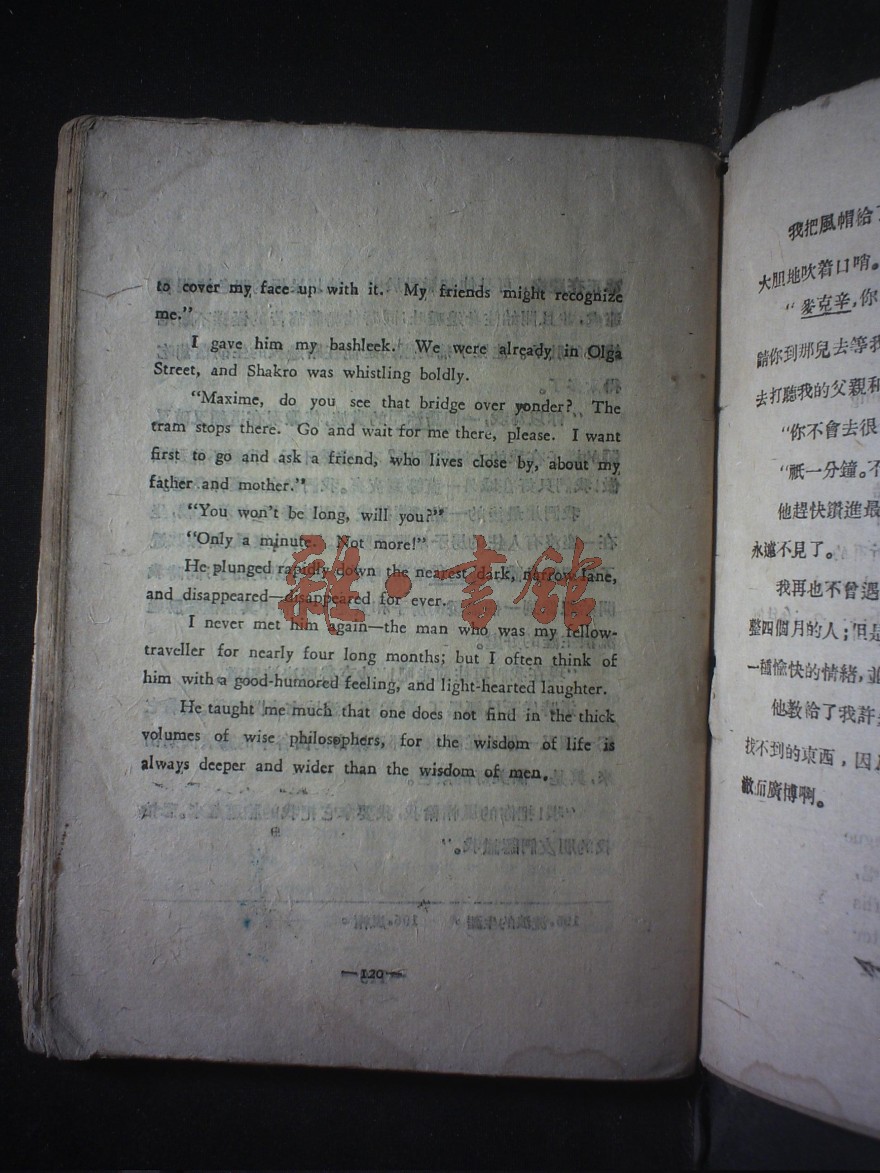 to cover my face up with it. My friends might recognize
me."
I gave him my bashleek. We were already in Olga
Street, and Shakro was whistling boldly.
"Maxime, do you see that bridge over yonder? The
tram stops there. Go and wait for me there, please. I want
first to go and ask a friend, who lives close by, about my
father and mother."
"You won't be long, will you?"
"Only a minute. Not more!"
He plunged rapidly down the nearest dark, narrow lane,
and disappeared—disappeared for ever.
I never met him again—the man who was my fellow-
traveller for nearly four long months; but I often think of
him with a good-humored feeling, and light-hearted laughter.
He taught me much that one does not find in the thick
volumes of wise philosophers, for the wisdom of life is
always deeper and wider than the wisdom of men.
—120—
我把風帽給了
大胆地吹着口哨。
“麥克辛，你
請你到那兒去等我
去打聽我的父親和
“你不會去很
“祇一分鐘。不
他趕快鑽進最
永遠不見了。
我再也不曾遇
整四個月的人；但是
一種愉快的情緒，並
他教給了我許
找不到的東西，因
而廣博啊。
書館